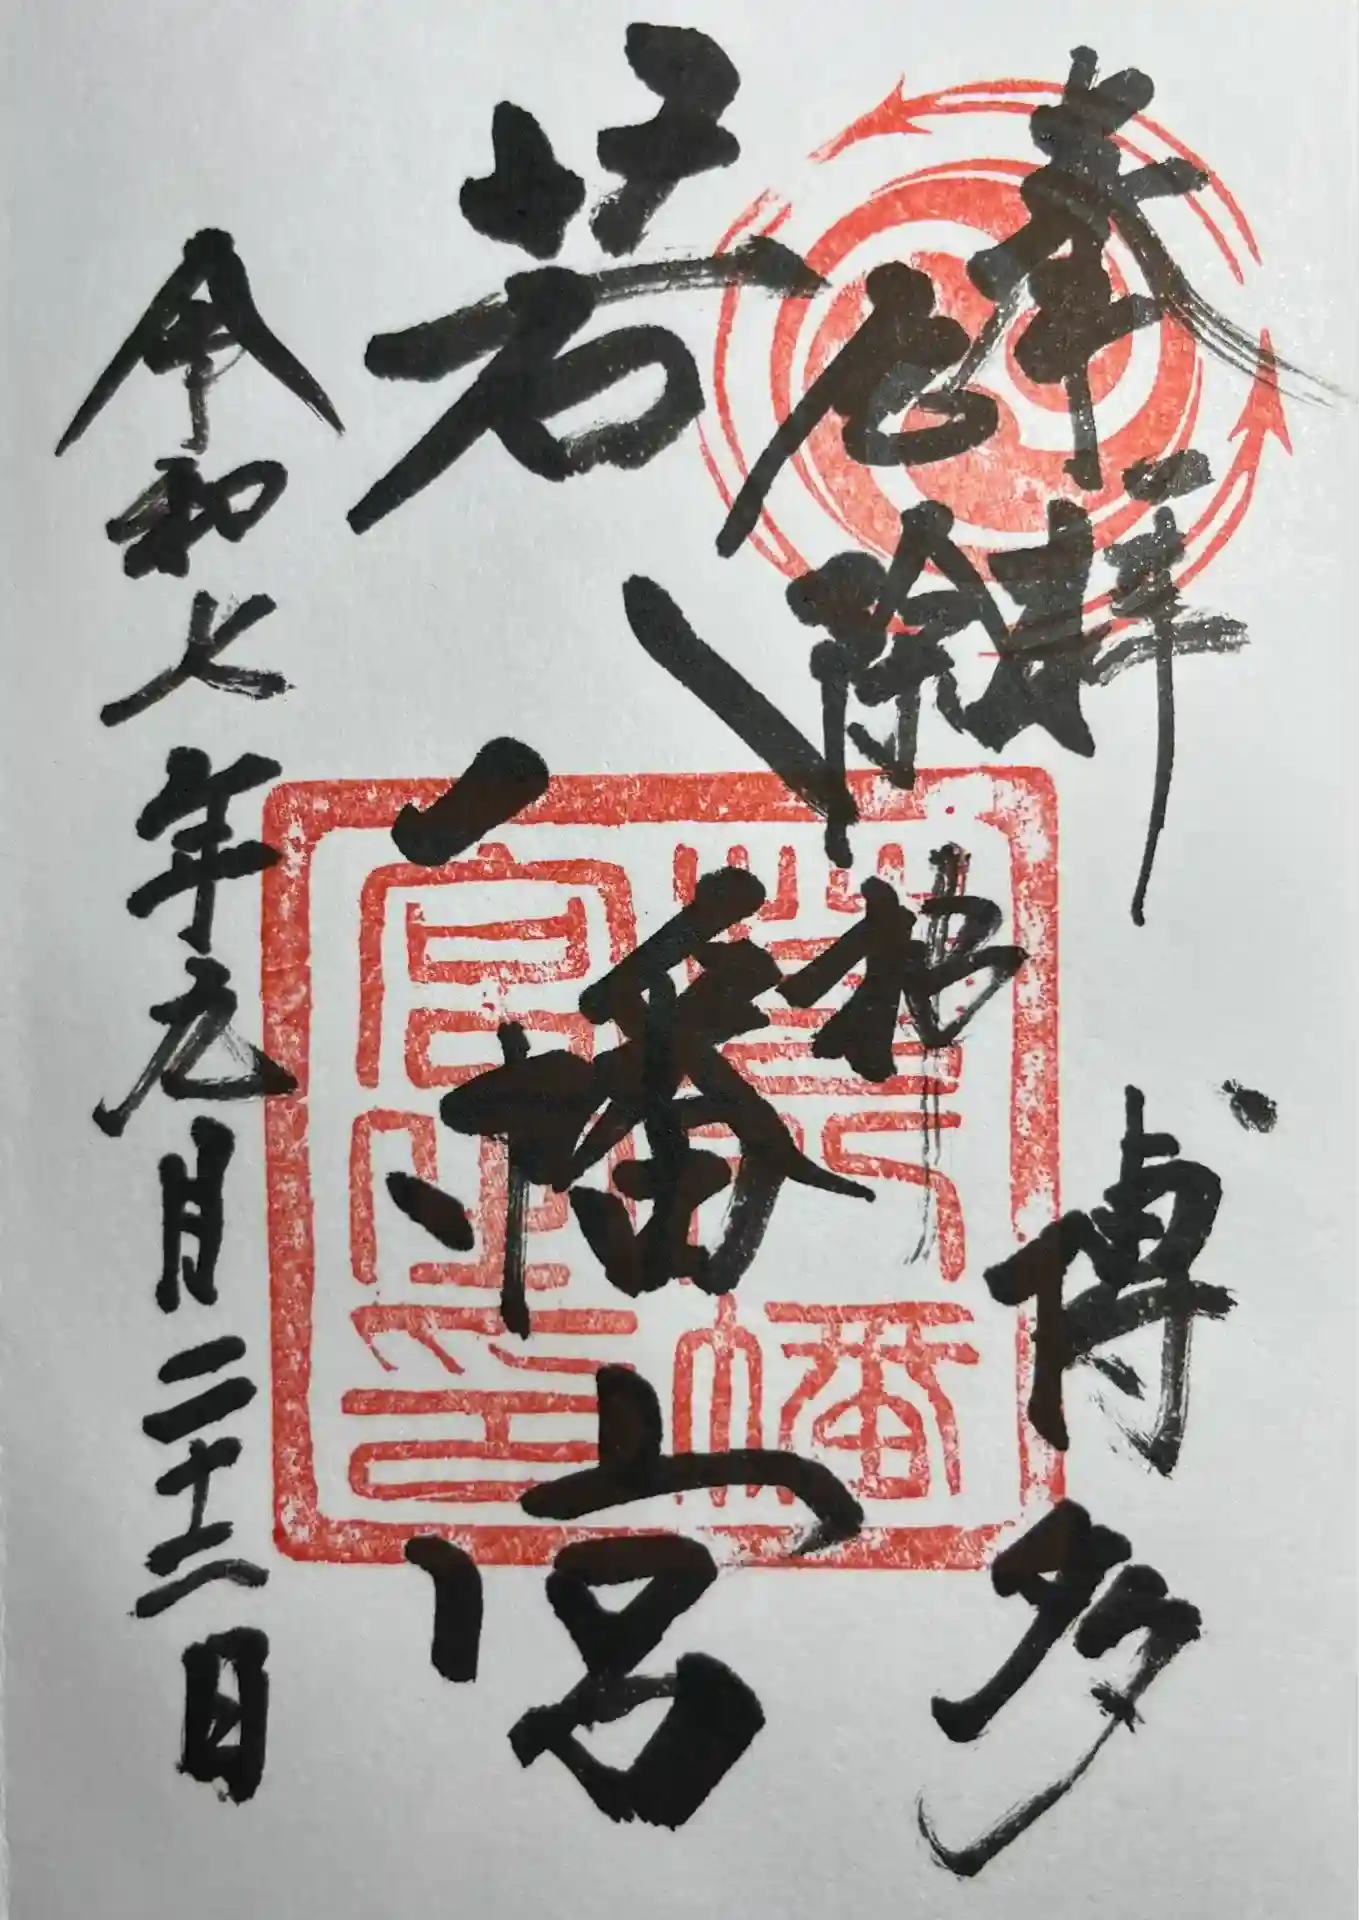 奉拝 博多
厄除神社
若八幡宮
令和七年九月二十二日
若八幡宮之印